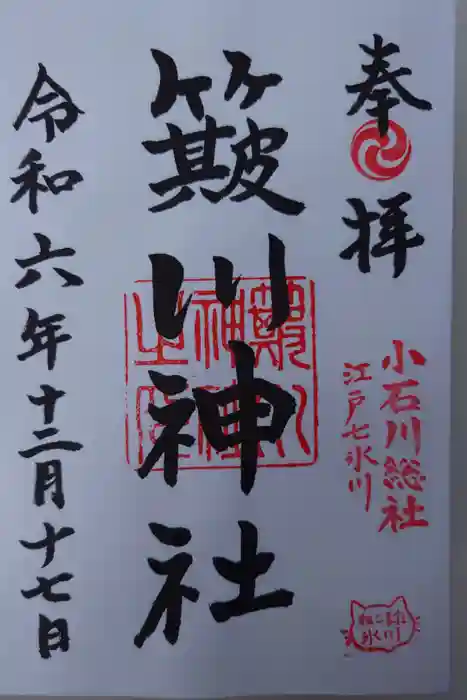 奉拝
小石川総社
江戸七氷川
簸川神社
簸川神社之印
令和六年十二月十七日